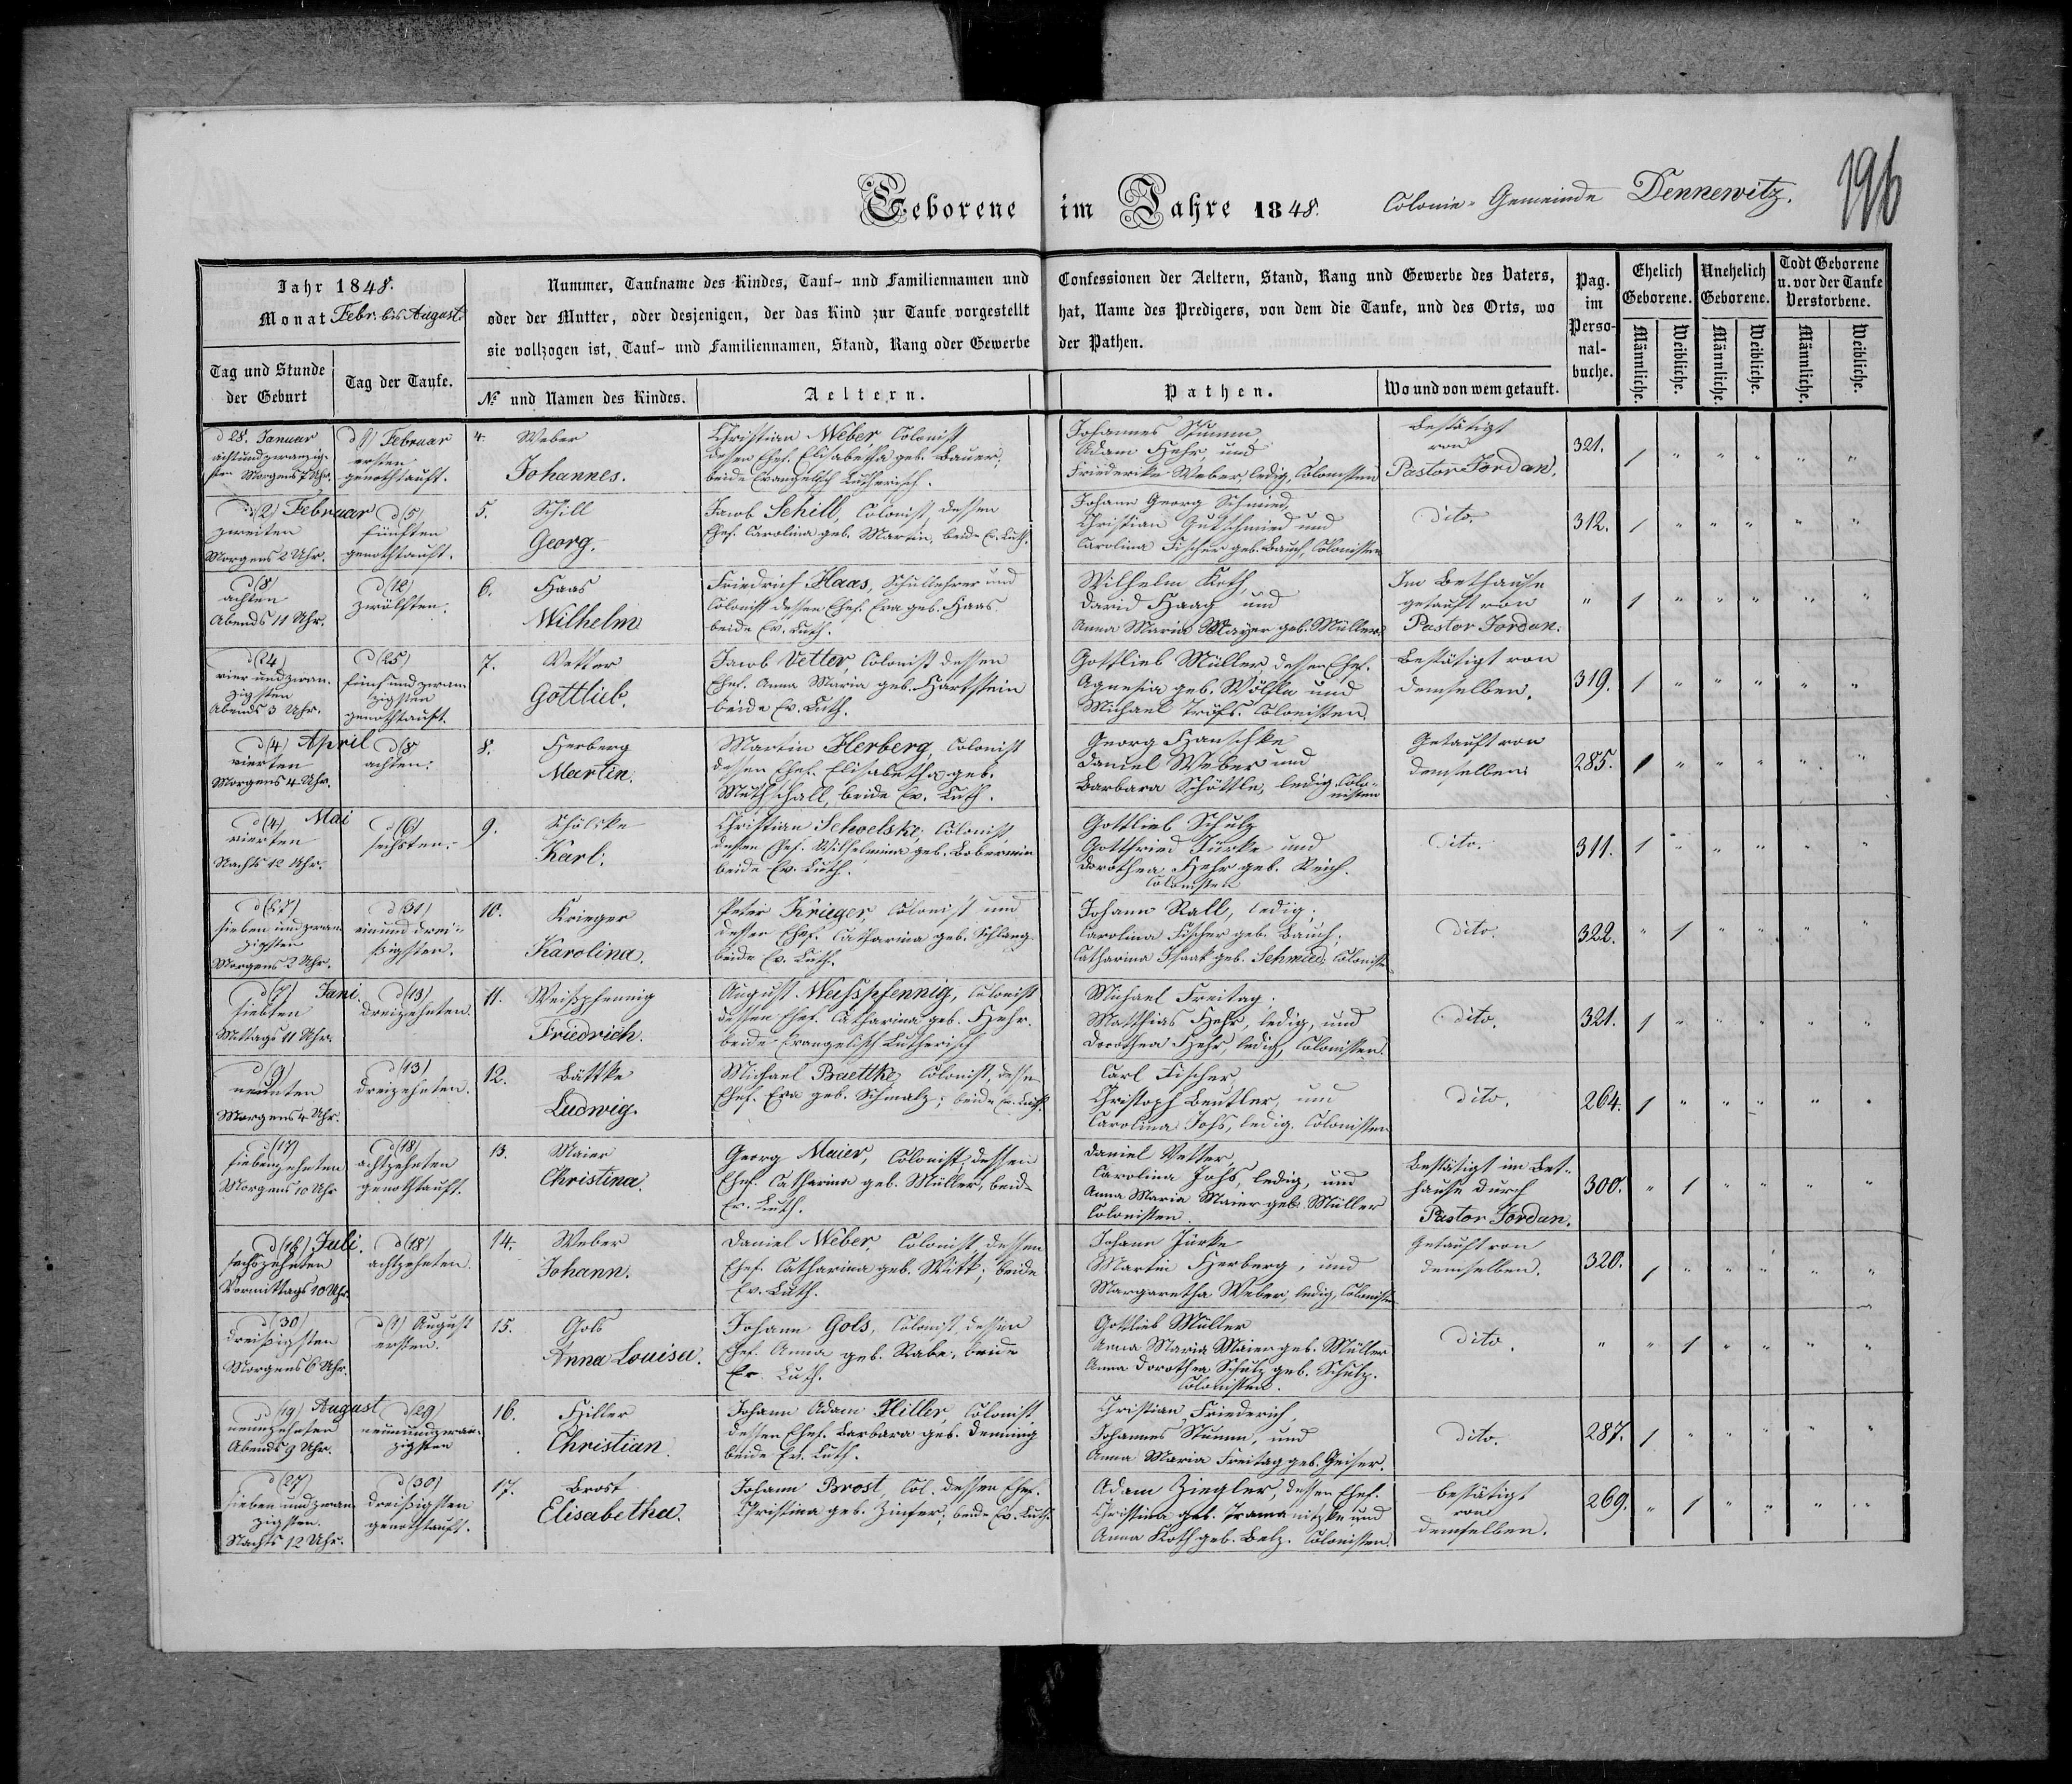 196
Geborene im Jahre 1848. Colonie-Gemeinde Dennewitz.
Jahr 1848.
Monat Febr. bis August.
Tag und Stunde
der Geburt
Tag der Taufe.
Nummer, Taufname des Kindes, Tauf- und Familiennamen und Confessionen der Aeltern, Stand, Rang und Gewerbe des Vaters,
oder der Mutter, oder desjenigen, der das Kind zur Taufe vorgestellt hat, Name des Predigers, von dem die Taufe, und des Orts, wo
sie vollzogen ist, Tauf- und Familiennamen, Stand, Rang oder Gewerbe der Pathen.
№ und Namen des Kindes.
Aeltern.
Pathen.
Wo und von wem getauft.
Pag.
im
Perso-
nal-
buche.
Ehelich
Geborene.
Unehelich
Geborene.
Todt Geborene
u. vor der Taufe
Verstorbene.
Männliche.
Weibliche.
Männliche.
Weibliche.
Männliche.
Weibliche.
d 28. Januar
achtundzwanzig-
sten Morgens 7 Uhr.
d (1) Februar
ersten
genothtauft.
4. Weber
Johannes.
Christian Weber, Colonist
dessen Ehef. Elisabetha geb. Bauer,
beide Evangelisch Lutherisch.
Johannes Stumm,
Adam Hehr, und
Friederike Weber, ledig, Colonisten
Bestätigt
von
Pastor Jordan.
321. 1 " " " " "
d (2) Februar
zweiten
Morgens 2 Uhr.
d (5)
fünften
genothtauft.
5. Schill
Georg.
Jacob Schill, Colonist, dessen
Ehef. Carolina geb. Martin, beide Ev. Luth.
Johann Georg Schmied,
Christian Gutschmied und
Carolina Fischer geb. Bauch, Colonisten
dito.
312. 1 " " " " "
d (8)
achten
Abends 11 Uhr.
d (12)
zwölften.
6. Haas
Wilhelm
Friedrich Haas, Schullehrer und
Colonist dessen Ehef. Eva geb. Haas
beide Ev. Luth.
Wilhelm Koth,
David Haag und
Anna Maria Mayer geb. Müller.
Im Bethause
getauft von
Pastor Jordan.
" 1 " " " " "
d (24)
vier und zwan-
zigsten
Abends 3 Uhr.
d (25)
fünf und zwan-
zigsten
genothtauft.
7. Vetter
Gottlieb.
Jacob Vetter, Colonist dessen
Ehef. Anna Maria geb. Hartstein
beide Ev. Luth.
Gottlieb Müller dessen Ehef.
Agnesia geb. Wölfle und
Michael Colonisten.
Bestätigt von
demselben.
319. 1 " " " " "
d (4) April
vierten
Morgens 4 Uhr.
d (8
achten.
8. Herberg
Martin.
Martin Herberg, Colonist
dessen Ehef. Elisabetha geb.
Muthschall, beide Ev. Luth.
Georg Hanschke
Daniel Weber und
Barbara Schöttle, ledig, Colo-
nisten
Getauft von
demselben.
285. 1 " " " " "
d (4.) Mai
vierten
Nachts 12 Uhr.
d (6)
sechsten.
9. Schölske
Karl.
Christian Schoelske, Colonist,
dessen Ehef. Wilhelmina geb. Bobermin
beide Ev. Luth.
Gottlieb Schulz
Gottfried Jürke und
Dorothea Hehr geb. Reich.
Colonisten
dito.
311. 1 " " " " "
d (27)
sieben und zwan
zigsten
Morgens 2 Uhr.
d (31)
ein und drei-
ßigsten.
10. Krieger
Karolina.
Peter Krieger, Colonist und
dessen Ehef. Catharina geb. Schlang
beide Ev. Luth.
Johann Rall, ledig,
Carolina Fischer geb. Bauch,
Catharina Isaak geb. Schmied, Coloniste
dito.
322. " 1 " " " "
d (7) Juni.
siebten
Mittags 11 Uhr.
d (13)
dreizehnten.
11. Weißpfennig
Friedrich.
August Weisspfennig, Colonist
dessen Ehef. Catharina geb. Hehr.
beide Evangelisch Lutherisch
Michael Freitag,
Matthias Hehr, ledig, und
Dorothea Hehr, ledig, Colonisten.
dito.
321. 1 " " " " "
d (9)
neunten
Morgens 4 Uhr.
d (13)
dreizehnten.
12. Bättke
Ludwig.
Michael Baettke, Colonist, dessen
Ehef. Eva geb. Schmalz; beide Ev. Luth.
Carl Fischer,
Christoph Beutler, und
Carolina Johs, ledig. Colonisten
dito.
264. 1 " " " " "
d (17)
siebenzehnten
Morgens 10 Uhr
d (18)
achtzehnten
genothtauft.
13. Maier
Christina.
Georg Maier, Colonist, dessen
Ehef. Catharina geb. Müller, beide
Ev. Luth.
Daniel Vetter,
Carolina Johs, ledig, und
Anna Maria Maier geb. Müller
Colonisten.
Bestätigt im Bet-
hause durch
Pastor Jordan.
300. " 1 " " " "
d (16) Juli.
sechszehnten
Vormittags 10 Uhr.
d (18)
achtzehnten.
14. Weber
Johann.
Daniel Weber, Colonist, dessen
Ehef. Catharina geb. Witt; beide
Ev. Luth.
Johann Jürke
Martin Herberg, und
Margaretha Weber, ledig, Colonisten
Getauft von
demselben.
320. 1 " " " " "
d (30)
dreißigsten
Morgens 6 Uhr.
d (1) August
ersten.
15. Gols
Anna Louisa.
Johann Gols, Colonist, dessen
Ehef. Anna geb. Rabe, beide
Ev. Luth.
Gottlieb Müller
Anna Maria Maier geb. Müller
Anna Dorothea Schulz geb. Schulz.
Colonisten.
dito.
" " 1 " " " "
d (19) August
neunzehnten
Abends 9 Uhr.
d (29)
neunundzwan-
zigsten
16. Hiller
Christian
Johann Adam Hiller, Colonist
dessen Ehef. Barbara geb. Denning
beide Ev. Luth.
Christian Friederich,
Johannes Stumm, und
Anna Maria Freitag geb. Geiser.
dito.
287. 1 " " " " "
d (27)
sieben und zwan
zigsten.
Nachts 12 Uhr.
d (30)
dreißigsten
genothtauft.
17. Brost
Elisabetha.
Johann Brost, Col. dessen Ehef.
Christina geb. Zinser, beide Ev. Luth.
Adam Ziegler, dessen Ehef.
Christina geb. Tramanitzke und
Anna Koth geb. Belz. Colonisten.
bestätigt
von
demselben.
269. " 1 " " " "